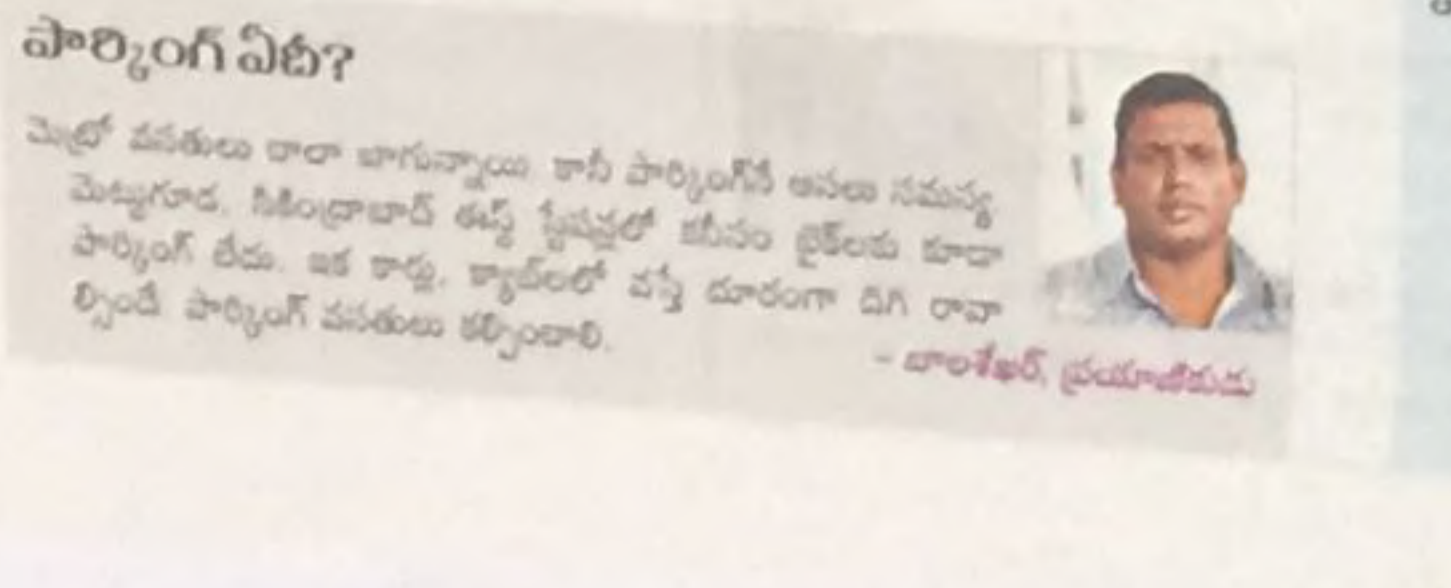 పార్కింగ్ ఏదీ?
మెట్రో వసతులు చాలా బాగున్నాయి. కానీ పార్కింగ్‌నే అసలు సమస్య
మెట్టుగూడ, సికింద్రాబాద్ ఈస్ట్ స్టేషన్లలో కనీసం బైక్‌లకు కూడా
పార్కింగ్ లేదు. ఇక కార్లు, క్యాబ్‌లలో వస్తే దూరంగా దిగి రావా
ల్సిందే. పార్కింగ్ వసతులు కల్పించాలి.
– బాలశేఖర్, ప్రయాణికుడు